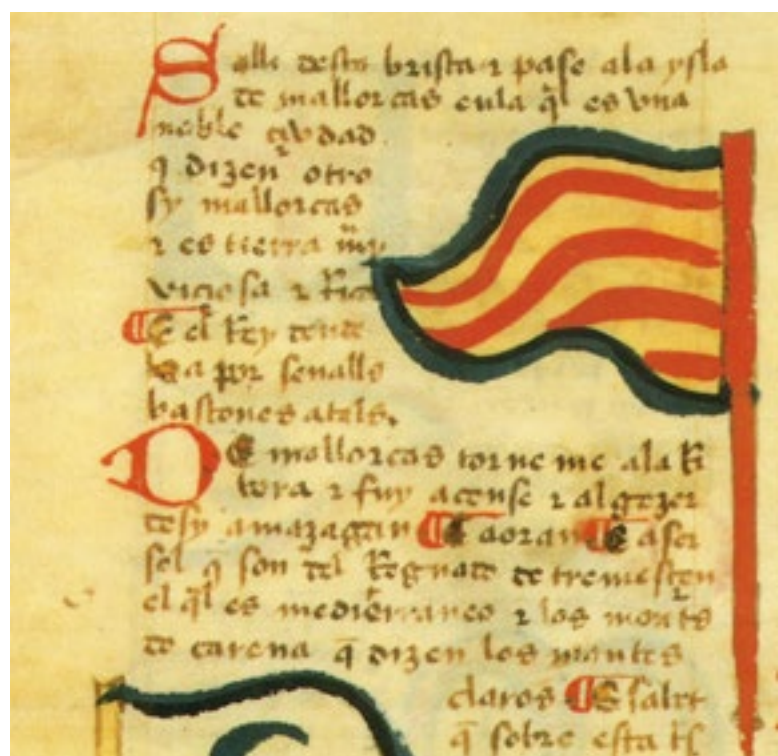 Salli desta brista ⁊ pase ala ysla
de mallorcas enla q̃l es vna
noble çibdad
q̃ dizen otro
sy mallorcas
⁊ es tierra mũy
viciosa ⁊ Rica
¶ E el Rey dende
ha por señalls
bastones atals.
De mallorcas torne me ala Ri
bera ⁊ fuy
tesy a mazagran ¶ E a oran ¶ E a
q̃ son del Regnado de tremesen
el q̃l es mediterraneo ⁊ los montes
de carena q̃ dizen los montes
claros ¶ E
q̃ sobre esta